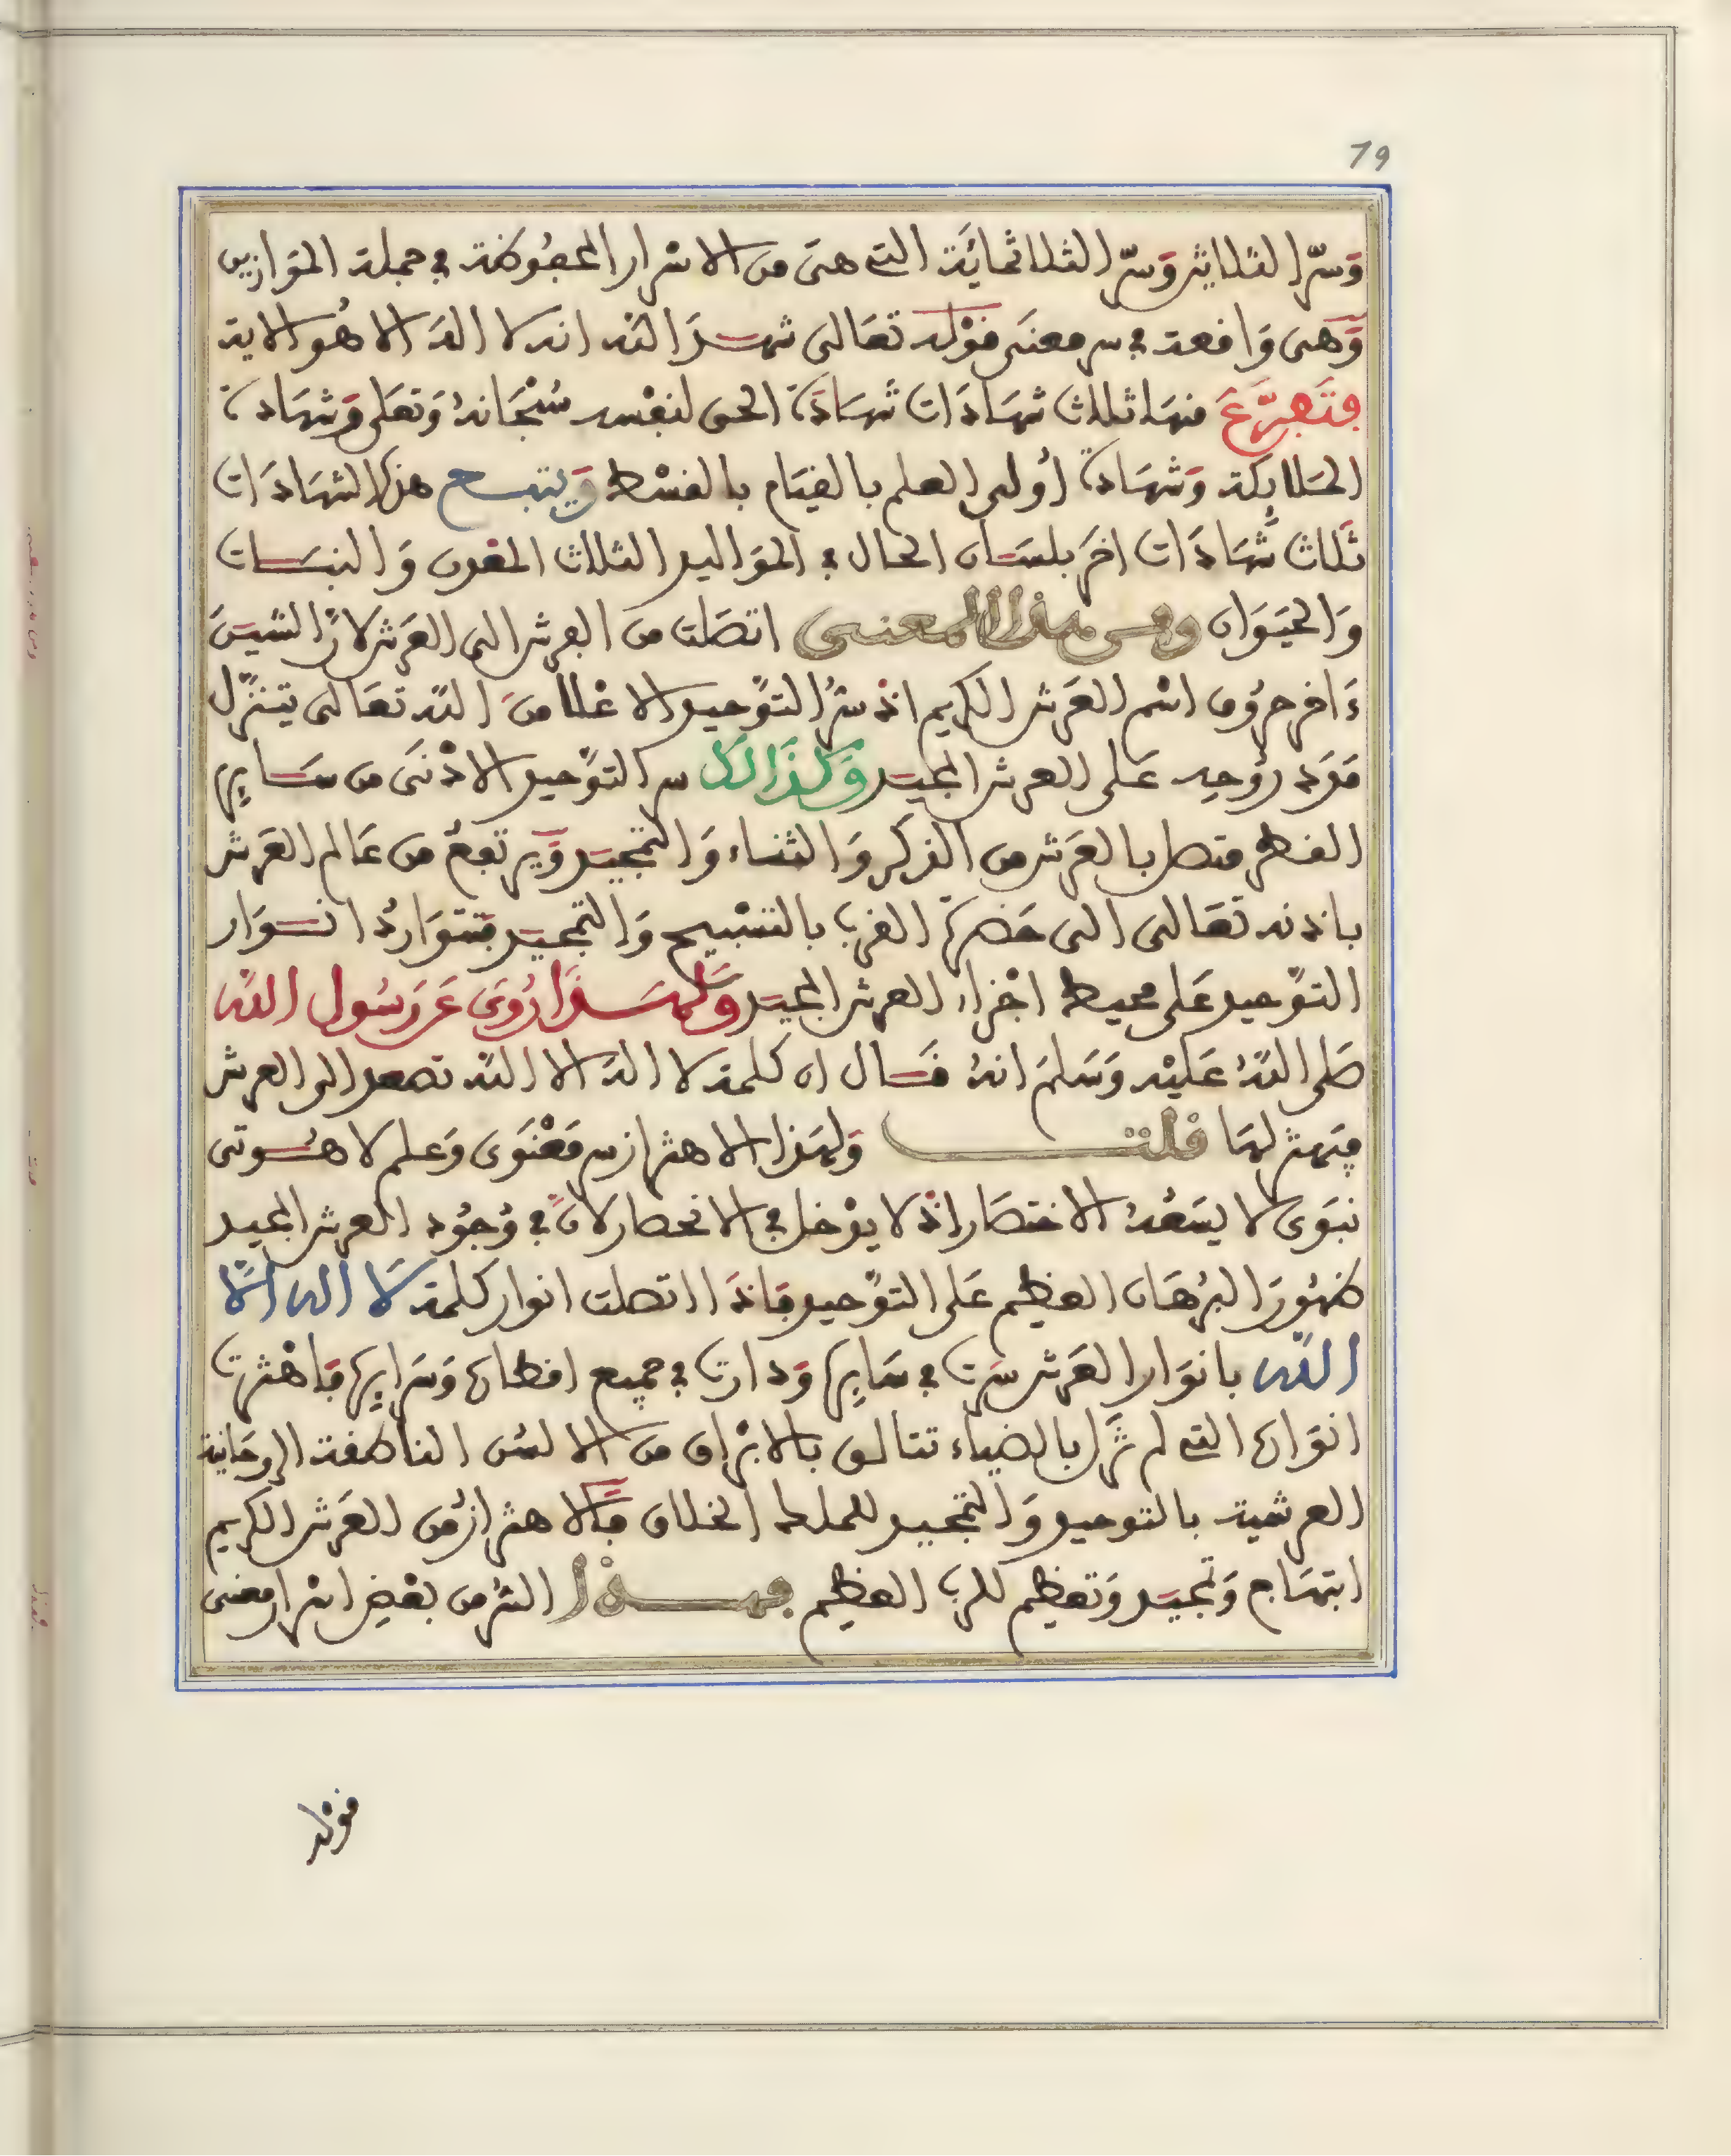 79
وَسرّ الثلاثين وَسرّ الثلاثمائَة التي هيَ من الاسْرار المحفُوظة في جملة المَوَازين
وَهي وَاقعة في سر معنىَ قوْله تعَالى شهدَ الله انه لا اله الا هُو الاية
فتَفرَّعَ منهَا ثلاث شهَادَات شهَادَة الحق لنفْسه سُبْحَانهُ وَتعَلى وَشهَادة
الملايكة وَشهَادة أولى العلم بالقيَام بالقسْط وَيتبع هذه الشهَادَات
ثلَاث شهَادَات اخَر بلسَان الحَال في الموَاليد الثلاث المعْدن وَالنبَات
وَالحيَوَان وفي هذا المعنى اتصَلت من الفرش الى العَرش لانّ الشينَ
ءَاخر حرُوف اسْم العَرش الكريم اذ سرُّ التوْحيد الاعْلا منَ الله تعَالى يتنزّل
موَدة رُوحِه عَلى العرش المجيد وَكذَالك سر التوْحيد الادْنىَ من سَايِر
الفطر متصل بالعَرش من الذكر وَالثناء وَالتمْجيد وَيرتفعُ من عَالم العَرش
باذنه تعَالى الى حَضرَة القرب بالتسْبيح وَالتمْجيد فتتوَاردُ انوَار
التوْحيد عَلى محيط اجْزاء العرش المجيد وَلهَذَا رُوىَ عَن رَسُول الله
صَلى اللهُ عَليْه وَسَلمَ انهُ قال ان كلمة لا اله الا الله تصعد الى العرش
فيهتز لهَا قلت وَلهَذا الاهتزاز سر مَعْنَوى وَعلم لاهُوتى
نبَوى لا يسَعُهُ الاختصَار اذْ لا يدْخل في الانحصار لانّ في وُجُود العرش المجيد
ظهُورَ البُرهَان العظيم عَلى التوْحيد فاذَا اتصلت انوار كلمة لَا اله الَّا
الله بانوَار العَرش سَرَت في سَايِرها وَدارت في جميع اقطارها وَسَرَايِرها فاهْتزت
انوَارها التي لم تَزل بالضيَاء تتالق بالابْراق من الالسُن الناطقة الروحَانية
العرشية بالتوحيد وَالتمْجيد للملك الخلاق فالاهتزازُ من العَرش الكريم
ابتهَاج وَتمجيد وَتعظيم للرب العظيم فهذا السُّر من بعْض اسْرار معنى
قوْله